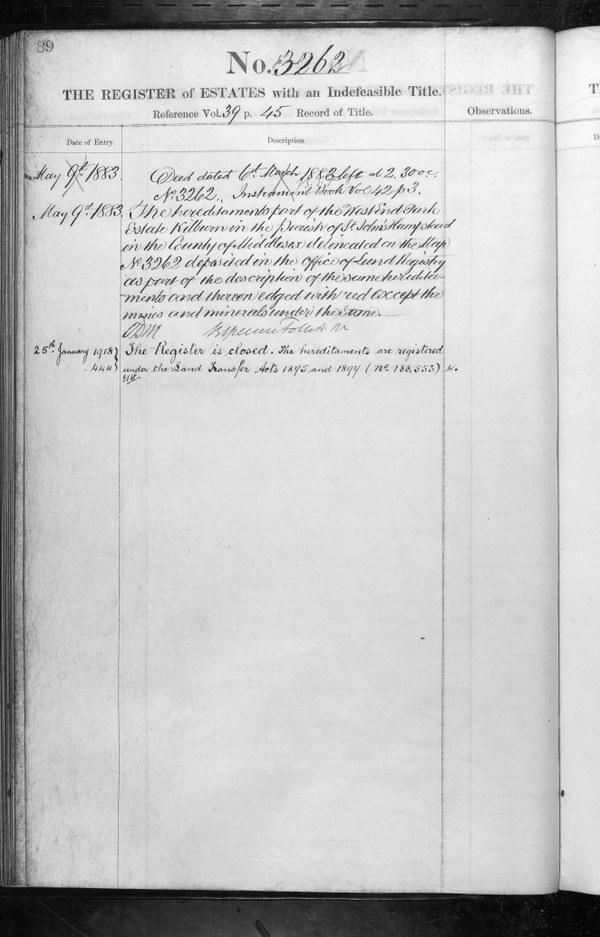 89
No. 3262
THE REGISTER of ESTATES with an Indefeasible Title.
Reference Vol. 39 p. 45 Record of Title.
Observations.
Date of Entry.
Description.
May 9th 1883. Deed dated 6th March 1883 left at 2.30 o.c.
No 3262. Instrument Book Vol 42 p 3.
May 9th 1883. The hereditaments part of the West End Park
Estate Kilburn in the parish of St. John's Hampstead
in the County of Middlesex delineated on the Map
No 3262 deposited in the Office of Land Registry
as part of the description of the same heredita-
ments and thereon edged with red except the
mines and minerals under the same.
25th January 1918 The Register is closed. The hereditaments are registered
444 under the Land Transfer Acts 1875 and 1897 (No 188,553)